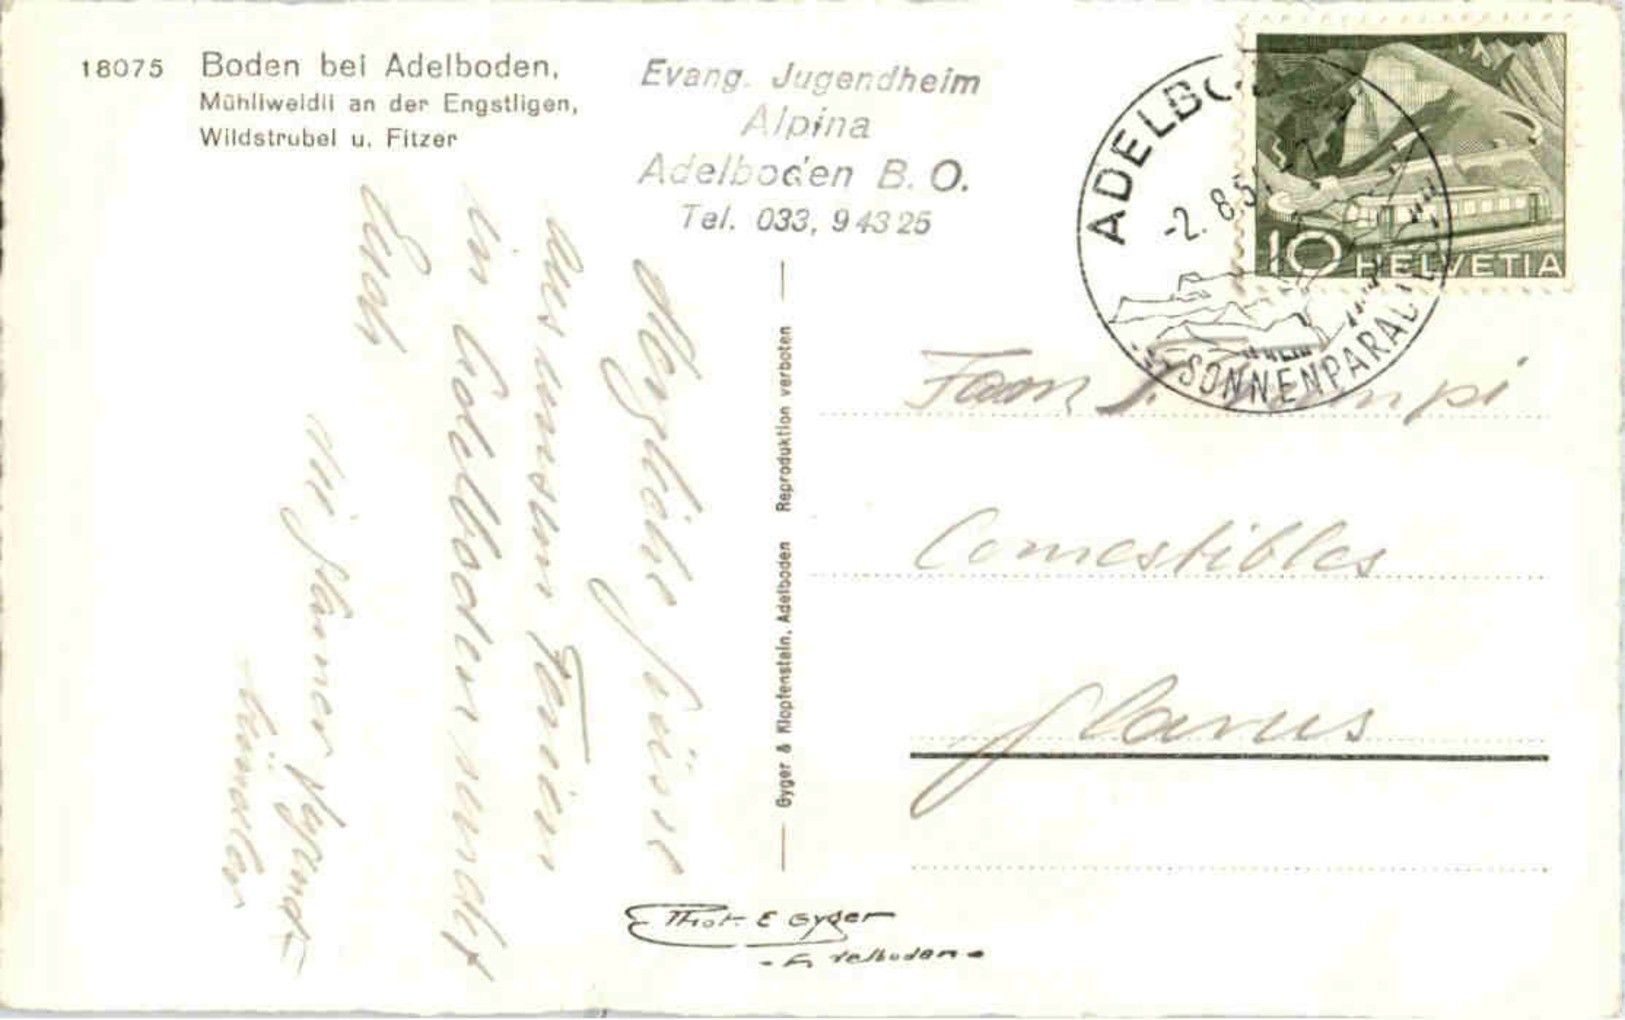 18075 Boden bei Adelboden,
Mühliweidli an der Engstligen,
Wildstrubel u. Fitzer
Evang. Jugendheim
Alpina
Adelboden B. O.
Tel. 033, 9 43 25
ADELBO
-2. 8.5
SONNENPARAD
10 HELVETIA
Herzliche Grüsse
aus unsern Ferien
in Adelboden sendet
Euch
Reproduktion verboten
Gyger & Klopfenstein, Adelboden
Fam J.
Comestibles
Glarus
Phot. E Gyger
- Adelboden -